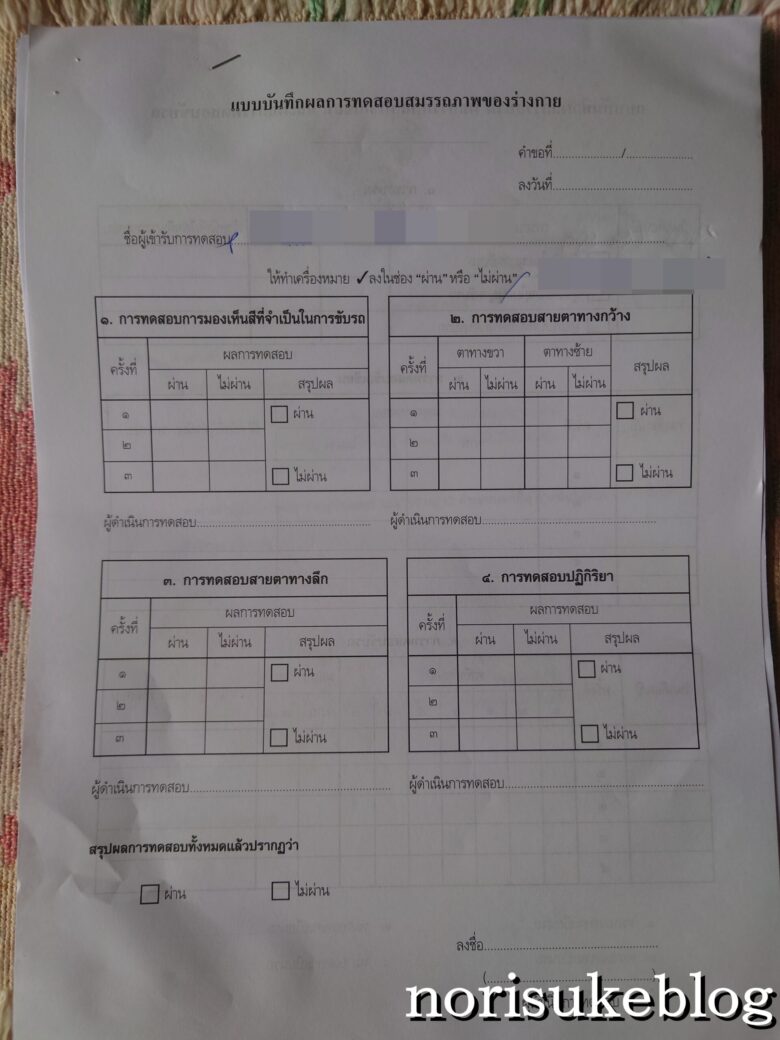 แบบบันทึกผลการทดสอบสมรรถภาพของร่างกาย
คำขอที่................../..................
ลงวันที่....................................
ชื่อผู้เข้ารับการทดสอบ
ให้ทำเครื่องหมาย ✓ ลงในช่อง “ผ่าน” หรือ “ไม่ผ่าน”
๑. การทดสอบการมองเห็นสีที่จำเป็นในการขับรถ
ครั้งที่ ผลการทดสอบ
ผ่าน ไม่ผ่าน สรุปผล
๑ ผ่าน
๒
๓ ไม่ผ่าน
ผู้ดำเนินการทดสอบ.............................................
๒. การทดสอบสายตาทางกว้าง
ครั้งที่ ตาทางขวา ตาทางซ้าย สรุปผล
ผ่าน ไม่ผ่าน ผ่าน ไม่ผ่าน
๑ ผ่าน
๒
๓ ไม่ผ่าน
ผู้ดำเนินการทดสอบ.............................................
๓. การทดสอบสายตาทางลึก
ครั้งที่ ผลการทดสอบ
ผ่าน ไม่ผ่าน สรุปผล
๑ ผ่าน
๒
๓ ไม่ผ่าน
ผู้ดำเนินการทดสอบ.............................................
๔. การทดสอบปฏิกิริยา
ครั้งที่ ผลการทดสอบ
ผ่าน ไม่ผ่าน สรุปผล
๑ ผ่าน
๒
๓ ไม่ผ่าน
ผู้ดำเนินการทดสอบ.............................................
สรุปผลการทดสอบทั้งหมดแล้วปรากฏว่า
ผ่าน ไม่ผ่าน
ลงชื่อ.............................................
(.............................................)
norisukeblog